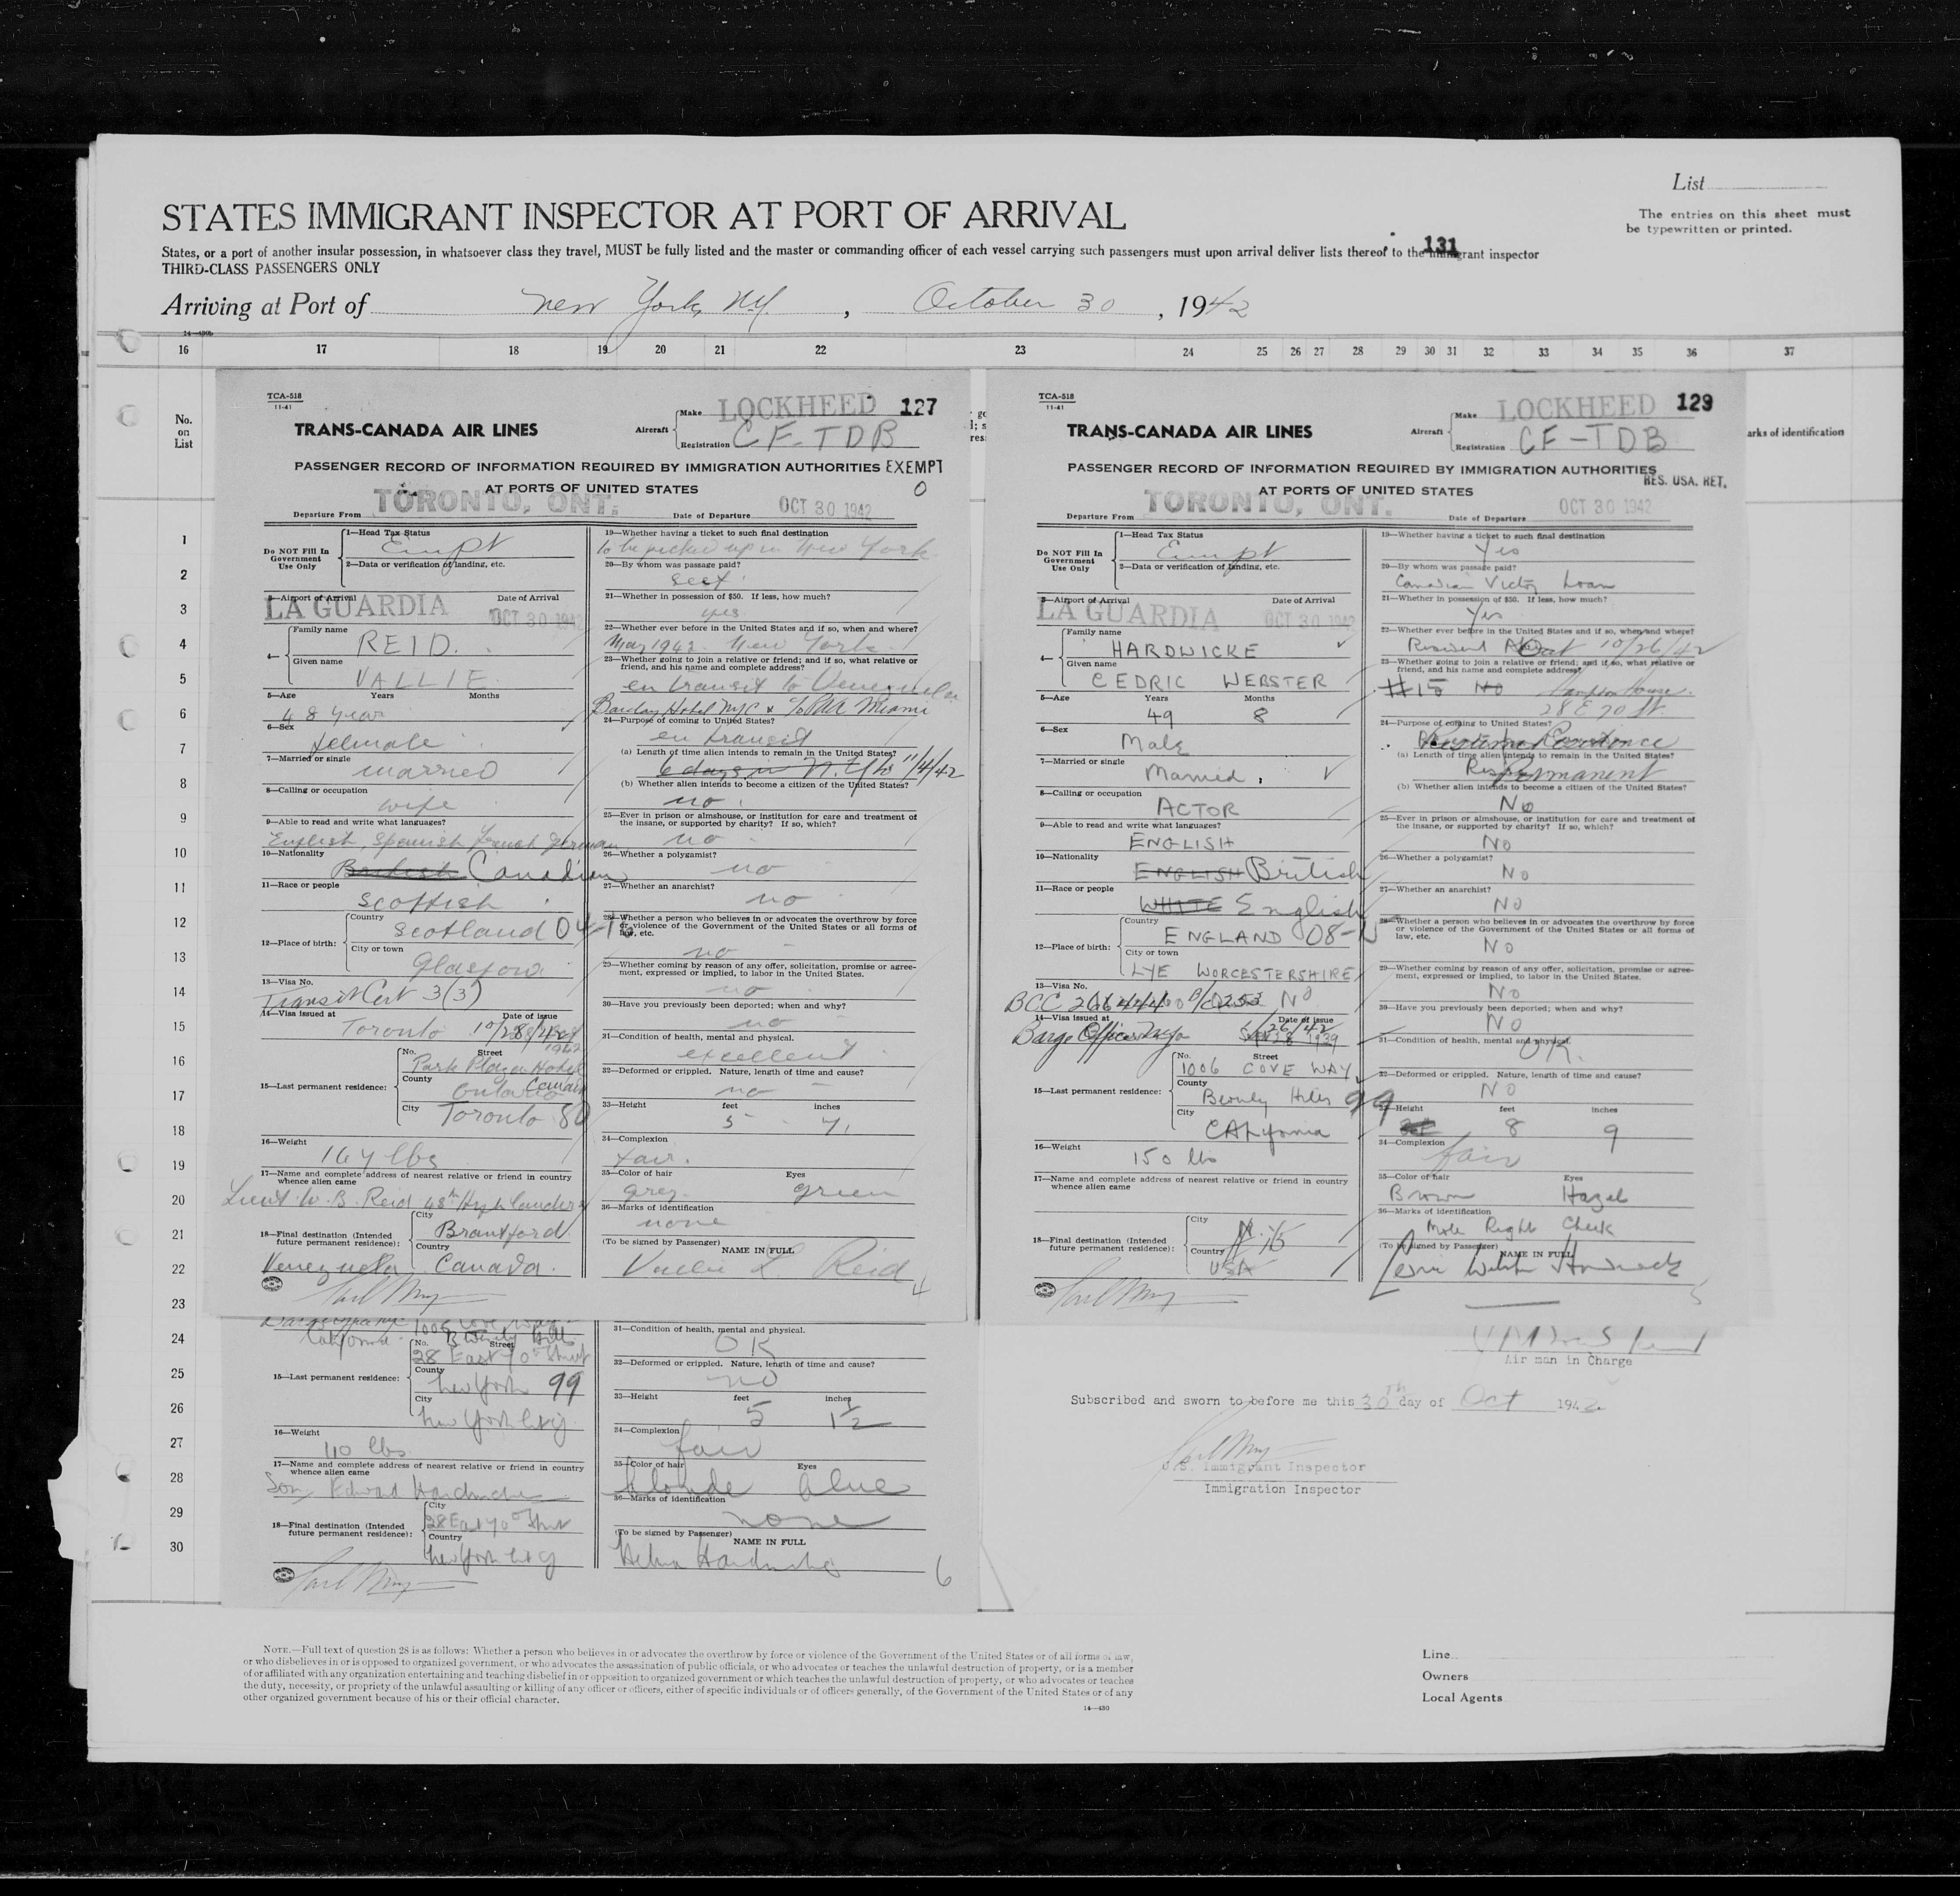 List
The entries on this sheet must
be typewritten or printed.
STATES IMMIGRANT INSPECTOR AT PORT OF ARRIVAL
131
States, or a port of another insular possession, in whatsoever class they travel, MUST be fully listed and the master or commanding officer of each vessel carrying such passengers must upon arrival deliver lists thereof to the immigrant inspector
THIRD-CLASS PASSENGERS ONLY
Arriving at Port of New York, N.Y., October 30, 1942
16 17 18 19 20 21 22 23 24 25 26 27 28 29 30 31 32 33 34 35 36 37
No.
on
List
arks of identification
1
2
3
4
5
6
7
8
9
10
11
12
13
14
15
16
17
18
19
20
21
22
23
24
25
26
27
28
29
30
TCA-518
11-41
Make LOCKHEED 127
TRANS-CANADA AIR LINES
Aircraft
Registration CF-TDB
PASSENGER RECORD OF INFORMATION REQUIRED BY IMMIGRATION AUTHORITIES EXEMPT
AT PORTS OF UNITED STATES 0
Departure From TORONTO, ONT. Date of Departure OCT 30 1942
Do NOT Fill In
Government
Use Only
1—Head Tax Status
2—Data or verification of landing, etc.
3—Airport of Arrival Date of Arrival
LA GUARDIA OCT 30 1942
4—
Family name
REID.
Given name
VALLIE
5—Age Years Months
48 years
6—Sex
7—Married or single
married
8—Calling or occupation
wife
9—Able to read and write what languages?
English Spanish French German
10—Nationality
British Canadian
11—Race or people
Scottish
12—Place of birth:
Country
Scotland
City or town
Glasgow
13—Visa No.
Transit Cert 3(3)
14—Visa issued at Date of issue
Toronto
15—Last permanent residence:
No. Street
Park Plaza Hotel
County
Ontario Canada
City
Toronto 80
16—Weight
164 lbs
17—Name and complete address of nearest relative or friend in country
whence alien came
Lieut W. B. Reid 48th Highlanders
18—Final destination (Intended
future permanent residence):
City
Brantford
Country
Venezuela Canada.
19—Whether having a ticket to such final destination
to be picked up in New York
20—By whom was passage paid?
self
21—Whether in possession of $50. If less, how much?
yes
22—Whether ever before in the United States and if so, when and where?
May 1942 New York
23—Whether going to join a relative or friend; and if so, what relative or
friend, and his name and complete address?
en transit to Venezuela
Barclay Hotel NYC Miami
24—Purpose of coming to United States?
en transit
(a) Length of time alien intends to remain in the United States?
6 days in N.Y. 11/4/42
(b) Whether alien intends to become a citizen of the United States?
no
25—Ever in prison or almshouse, or institution for care and treatment of
the insane, or supported by charity? If so, which?
no
26—Whether a polygamist?
no
27—Whether an anarchist?
no
28—Whether a person who believes in or advocates the overthrow by force
or violence of the Government of the United States or all forms of
law, etc.
no
29—Whether coming by reason of any offer, solicitation, promise or agree-
ment, expressed or implied, to labor in the United States.
no
30—Have you previously been deported; when and why?
no
31—Condition of health, mental and physical.
excellent
32—Deformed or crippled. Nature, length of time and cause?
no
33—Height feet inches
34—Complexion
fair.
35—Color of hair Eyes
grey green
36—Marks of identification
none
(To be signed by Passenger) NAME IN FULL
Vallie L Reid
4
TCA-518
11-41
Make LOCKHEED 129
TRANS-CANADA AIR LINES
Aircraft
Registration CF-TDB
PASSENGER RECORD OF INFORMATION REQUIRED BY IMMIGRATION AUTHORITIES
RES. USA. RET.
AT PORTS OF UNITED STATES
Departure From TORONTO, ONT. Date of Departure OCT 30 1942
Do NOT Fill In
Government
Use Only
1—Head Tax Status
2—Data or verification of landing, etc.
3—Airport of Arrival Date of Arrival
LA GUARDIA OCT 30 1942
4—
Family name
HARDWICKE
Given name
CEDRIC WEBSTER
5—Age Years Months
49 8
6—Sex
Male
7—Married or single
Married
8—Calling or occupation
ACTOR
9—Able to read and write what languages?
ENGLISH
10—Nationality
ENGLISH British
11—Race or people
WHITE English
12—Place of birth:
Country
ENGLAND
City or town
LYE WORCESTERSHIRE
13—Visa No.
No
14—Visa issued at Date of issue
15—Last permanent residence:
No. Street
1006 COVE WAY
County
Beverly Hills 99
City
California
16—Weight
150 lbs
17—Name and complete address of nearest relative or friend in country
whence alien came
18—Final destination (Intended
future permanent residence):
City
Country
USA
19—Whether having a ticket to such final destination
Yes
20—By whom was passage paid?
Canadian Victory Loan
21—Whether in possession of $50. If less, how much?
Yes
22—Whether ever before in the United States and if so, when and where?
Resident 10/26/42
23—Whether going to join a relative or friend; and if so, what relative or
friend, and his name and complete address?
#15 No Hampton House.
28 E 70 St.
24—Purpose of coming to United States?
(a) Length of time alien intends to remain in the United States?
Permanent
(b) Whether alien intends to become a citizen of the United States?
No
25—Ever in prison or almshouse, or institution for care and treatment of
the insane, or supported by charity? If so, which?
No
26—Whether a polygamist?
No
27—Whether an anarchist?
No
28—Whether a person who believes in or advocates the overthrow by force
or violence of the Government of the United States or all forms of
law, etc.
No
29—Whether coming by reason of any offer, solicitation, promise or agree-
ment, expressed or implied, to labor in the United States.
No
30—Have you previously been deported; when and why?
No
31—Condition of health, mental and physical.
OK.
32—Deformed or crippled. Nature, length of time and cause?
No
33—Height feet inches
8 9
34—Complexion
fair
35—Color of hair Eyes
Brown Hazel
36—Marks of identification
Mole Right Cheek
(To be signed by Passenger) NAME IN FULL
1006 Cove Way
California Beverly Hills
15—Last permanent residence:
No. Street
28 East 70th Street
County
New York 99
City
New York City
16—Weight
110 lbs
17—Name and complete address of nearest relative or friend in country
whence alien came
Son, Edward Hardwicke
18—Final destination (Intended
future permanent residence):
City
28 East 70th Street
Country
New York City
31—Condition of health, mental and physical.
OK
32—Deformed or crippled. Nature, length of time and cause?
no
33—Height feet inches
5 1½
34—Complexion
fair
35—Color of hair Eyes
blonde blue
36—Marks of identification
none
(To be signed by Passenger) NAME IN FULL
Helena Hardwicke
6
Air man in Charge
Subscribed and sworn to before me this 30th day of Oct 1942.
U.S. Immigrant Inspector
Immigration Inspector
NOTE.—Full text of question 28 is as follows: Whether a person who believes in or advocates the overthrow by force or violence of the Government of the United States or of all forms of law,
or who disbelieves in or is opposed to organized government, or who advocates the assassination of public officials, or who advocates or teaches the unlawful destruction of property, or is a member
of or affiliated with any organization entertaining and teaching disbelief in or opposition to organized government or which teaches the unlawful destruction of property, or who advocates or teaches
the duty, necessity, or propriety of the unlawful assaulting or killing of any officer or officers, either of specific individuals or of officers generally, of the Government of the United States or of any
other organized government because of his or their official character.
14—430
Line
Owners
Local Agents